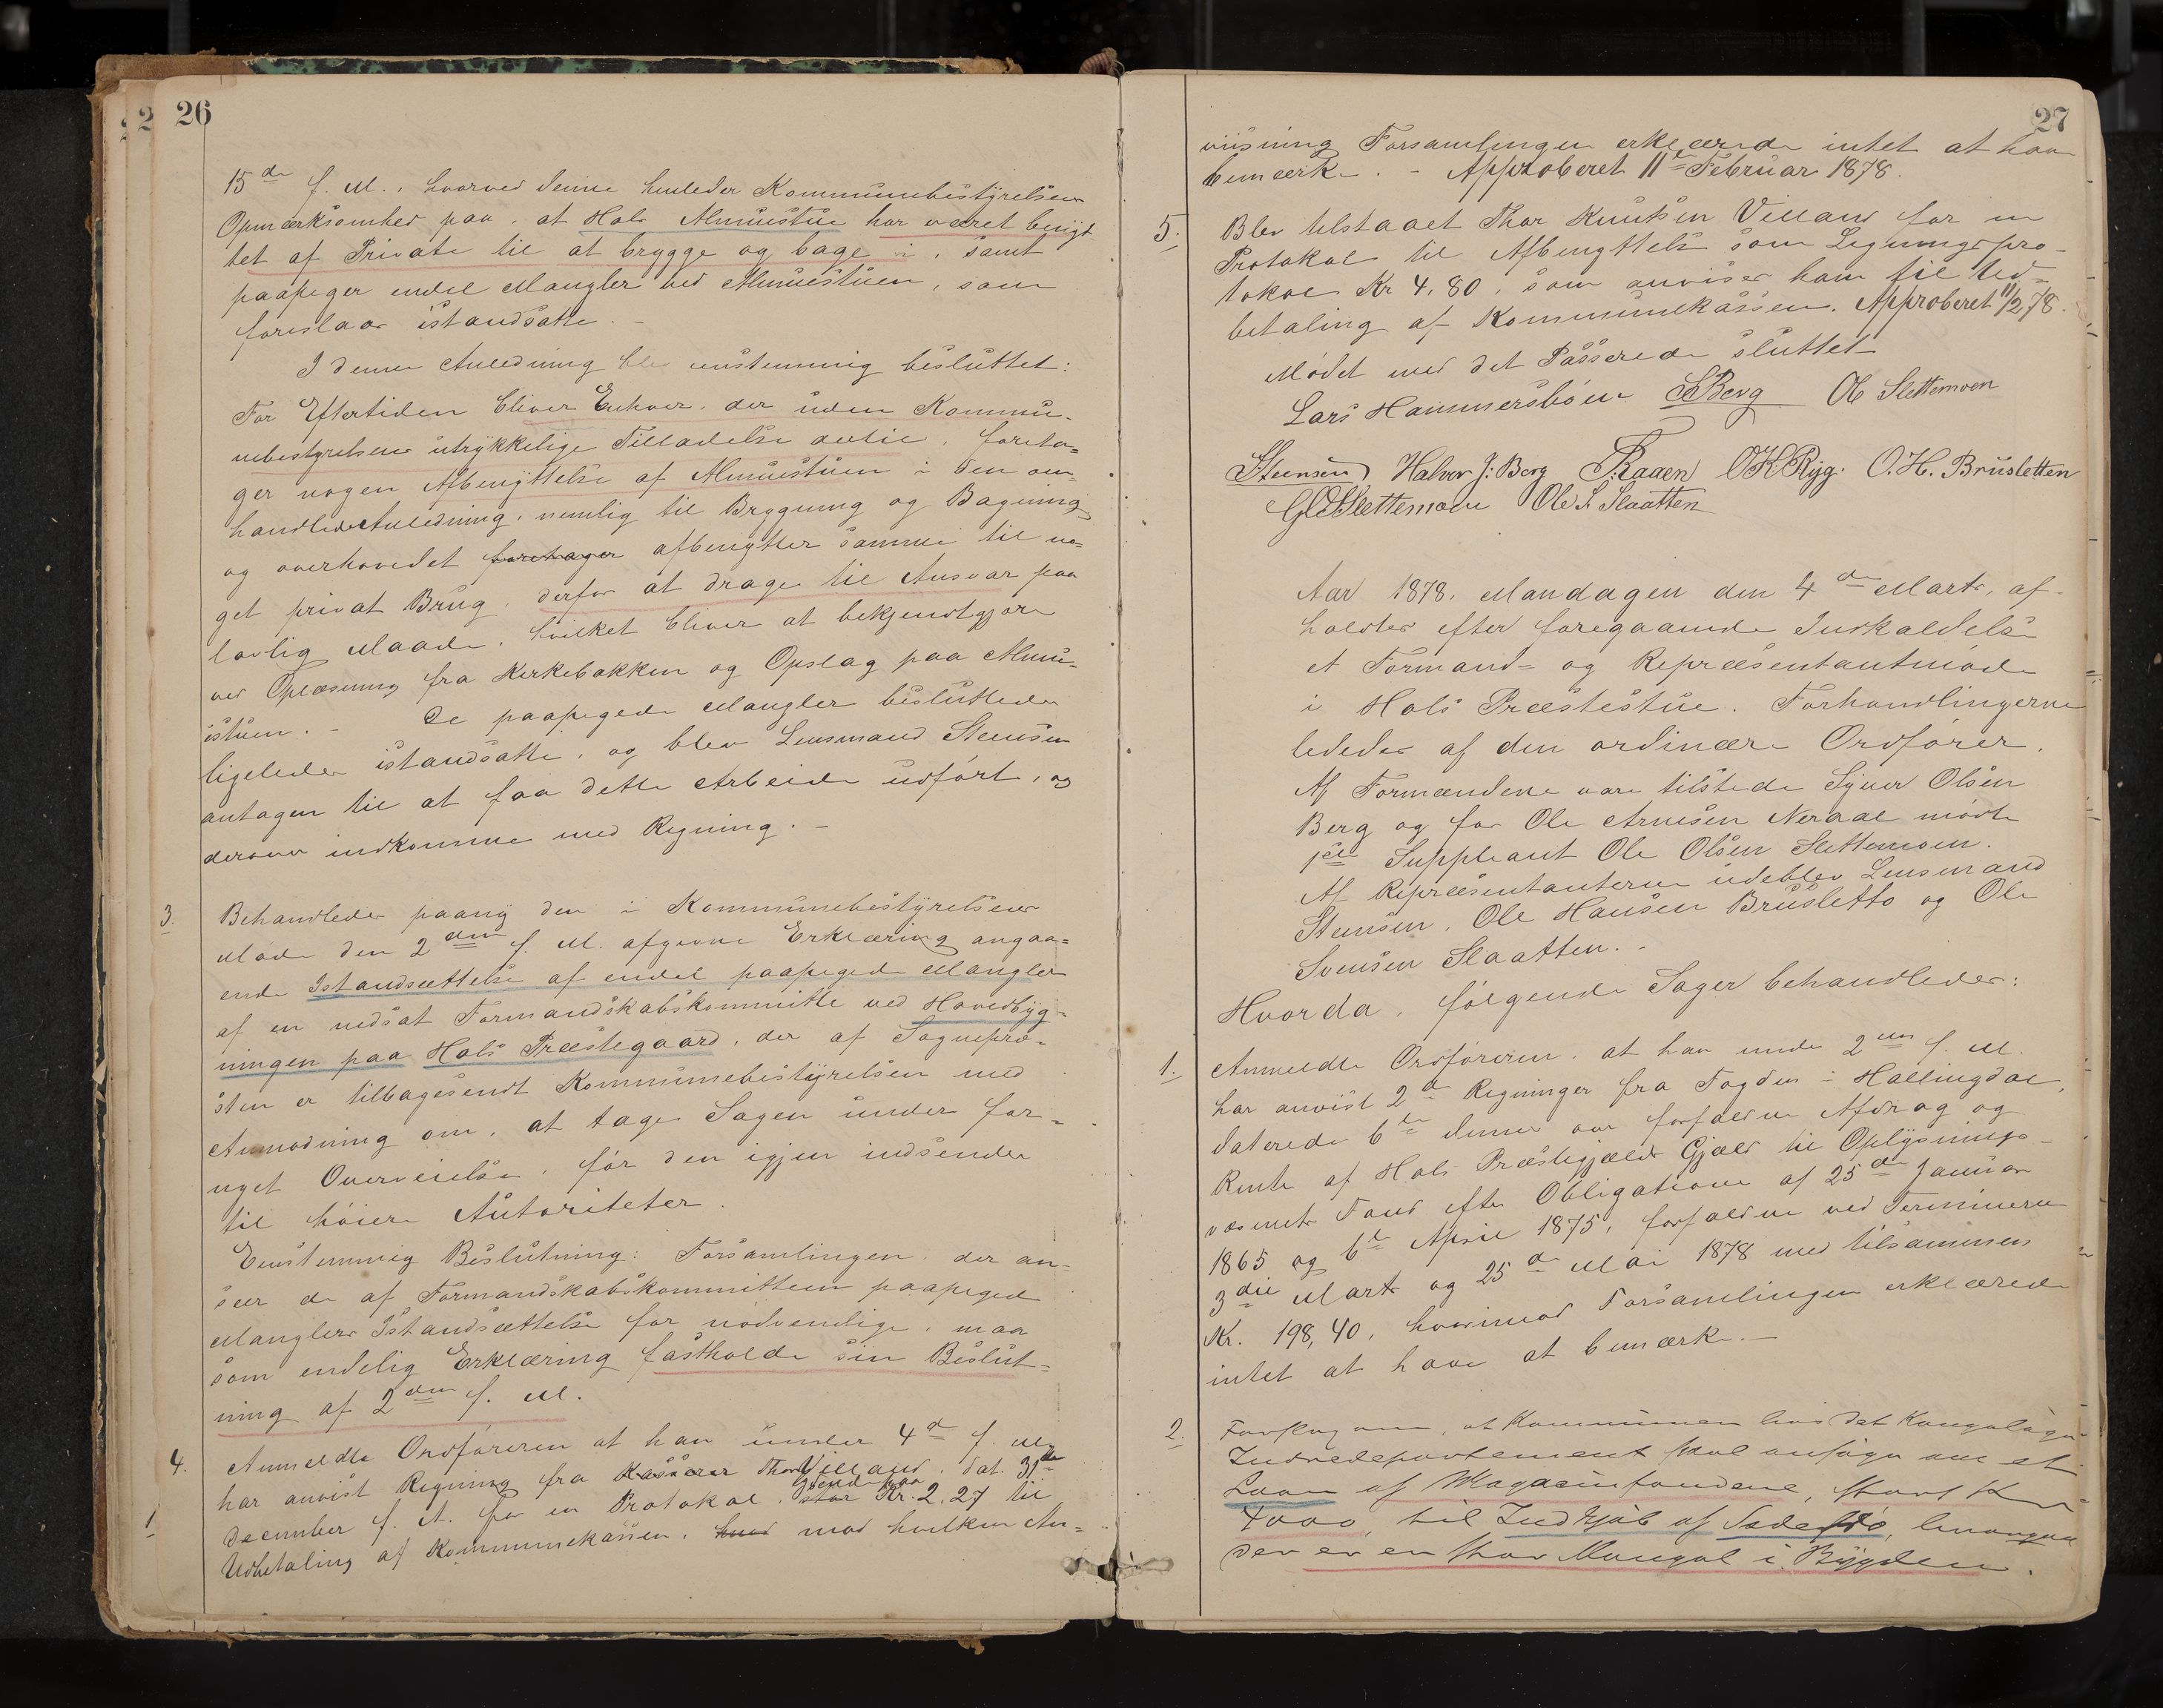 26
15de f. M., hvorved denne henleder Kommunebestyrelsens
Opmærksomhed paa, at Hols Almuestue har været benyt
tet af Private til at brygge og bage i, samt
paapeger endel Mangler ved Almuestuen, som
foreslaaes istandsatte. -
I denne Anledning blev enstemmig besluttet:
For Eftertiden bliver Enhver, der uden Kommu-
nebestyrelsens utrykkelige Tilladelse dertil, foreta-
ger nogen Afbenyttelse af Almuestuen i den om-
handlede Anledning, nemlig til Brygning og Bagning
og overhovedet foretager afbenytter samme til no-
get privat Brug, derfor at drage til Ansvar paa
lovlig Maade, hvilket bliver at bekjendtgjøre
ved Oplæsning fra Kirkebakken og Opslag paa Almu-
estuen. - De paapegede Mangler besluttedes
ligeledes istandsatte, og blev Lensmand Steensen
antagen til at faa dette Arbeide udført, og
derover indkomme med Regning. -
3. Behandledes paany den i Kommunebestyrelsens
Møde den 2den f. M. afgivne Erklæring angaa-
ende Istandsættelse af endel paapegede Mangler
af en nedsat Formandskabskommitte ved Hovedbyg-
ningen paa Hols Præstegaard, der af Sognepræ-
sten er tilbagesendt Kommunebestyrelsen med
Anmodning om, at tage Sagen under for-
nyet Overveielse, før den igjen indsendes
til høiere Autoriteter.
Eenstemmig Beslutning: Forsamlingen, der an-
seer de af Formandskabskommitteen paapegede
Manglers Istandsættelse for nødvendige, maa
som endelig Erklæring fastholde sin Beslut-
ning af 2den f. M.
4. Anmeldte Ordføreren at han under 4de f. M.
har anvist Regning fra Kasserer Thor Villand, dat. 31te
December f. A. for en Protokol, stor Kr. 2,27 til
Udbetaling af Kommunekassen, hvad mod hvilken An-
27
viisning Forsamlingen erklærede intet at have
bemærke. - Approberet 11te Februar 1878.
5. Blev tilstaaet Thor Knutsen Villand for en
Protokol til Afbenyttelse som Ligningspro-
tokol Kr 4,80, som anvises ham til Ud-
betaling af Kommunekassen. Approberet 11/2 78.
Mødet med det Passerede sluttet
Lars Hammersbøen SOBerg Ole Slettemoen
Steensen Halvor J: Berg TRaaen OKRyg. O. H. Brusletten
GOSlettemoen Ole S. Slaatten
Aar 1878, Mandagen den 4de Marts, af-
holdtes efter foregaaende Indkaldelse
et Formands- og Repræsentantmøde
i Hols Præstestue. Forhandlingerne
lededes af den ordinære Ordfører.
Af Formændene vare tilstede Syver Olsen
Berg og for Ole Arnesen Neraal mødte
1ste Suppleant Ole Olsen Slettemoen.
Af Repræsentanterne udeblev Lensmand
Steensen, Ole Hansen Brusletto og Ole
Svensen Slaatten. -
Hvorda, følgende Sager behandledes:
1. Anmeldte Ordføreren, at han under 2den f. M.
har anvist 2de Regninger fra Fogden i Hallingdal,
daterede 6te denne over forfaldne Afdrag og
Rente af Hols Præstegjælds Gjæld til Oplysnings-
væsenets Fond efter Obligationer af 25de Januar
1865 og 6te April 1875, forfaldne ved Terminerne
3die Marts og 25de Mai 1878 med tilsammen
Kr. 198,40, hvorimod Forsamlingen erklærede
intet at have at bemærke. -
2. Forslag om, at Kommunen hos det Kongelige
Indredepartement skal ansøge om et
Laan af Magasinfondene, stort Kr
4000, til Indkjøb af Sædefrø,
der er en stor Mangel i Bygden.